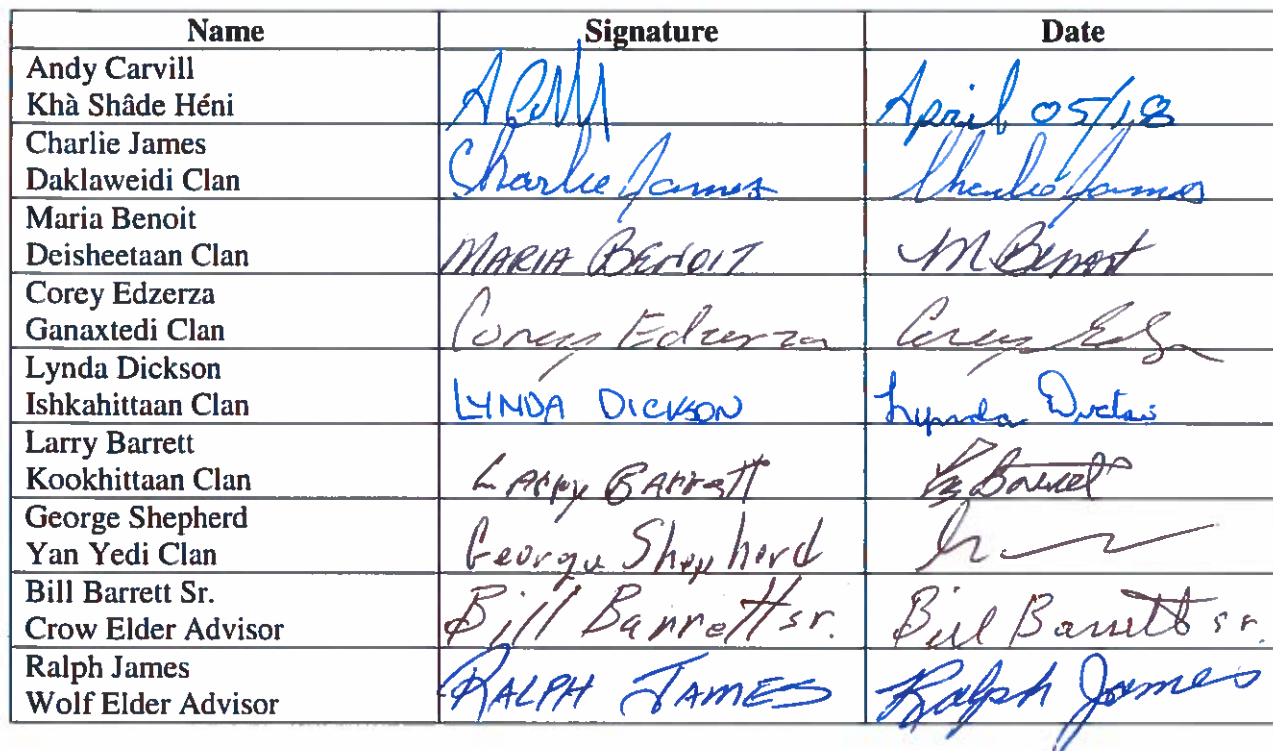 Name Signature Date
Andy Carvill
Khà Shâde Héni April 05/18
Charlie James
Daklaweidi Clan Charlie James Charlie James
Maria Benoit
Deisheetaan Clan MARIA BENOIT M Benoit
Corey Edzerza
Ganaxtedi Clan Corey Edzerza Corey
Lynda Dickson
Ishkahittaan Clan LYNDA DICKSON Lynda Dickson
Larry Barrett
Kookhittaan Clan Larry Barrett Barrett
George Shepherd
Yan Yedi Clan George Shepherd
Bill Barrett Sr.
Crow Elder Advisor Bill Barrett sr. Bill Barrett sr.
Ralph James
Wolf Elder Advisor RALPH JAMES Ralph James